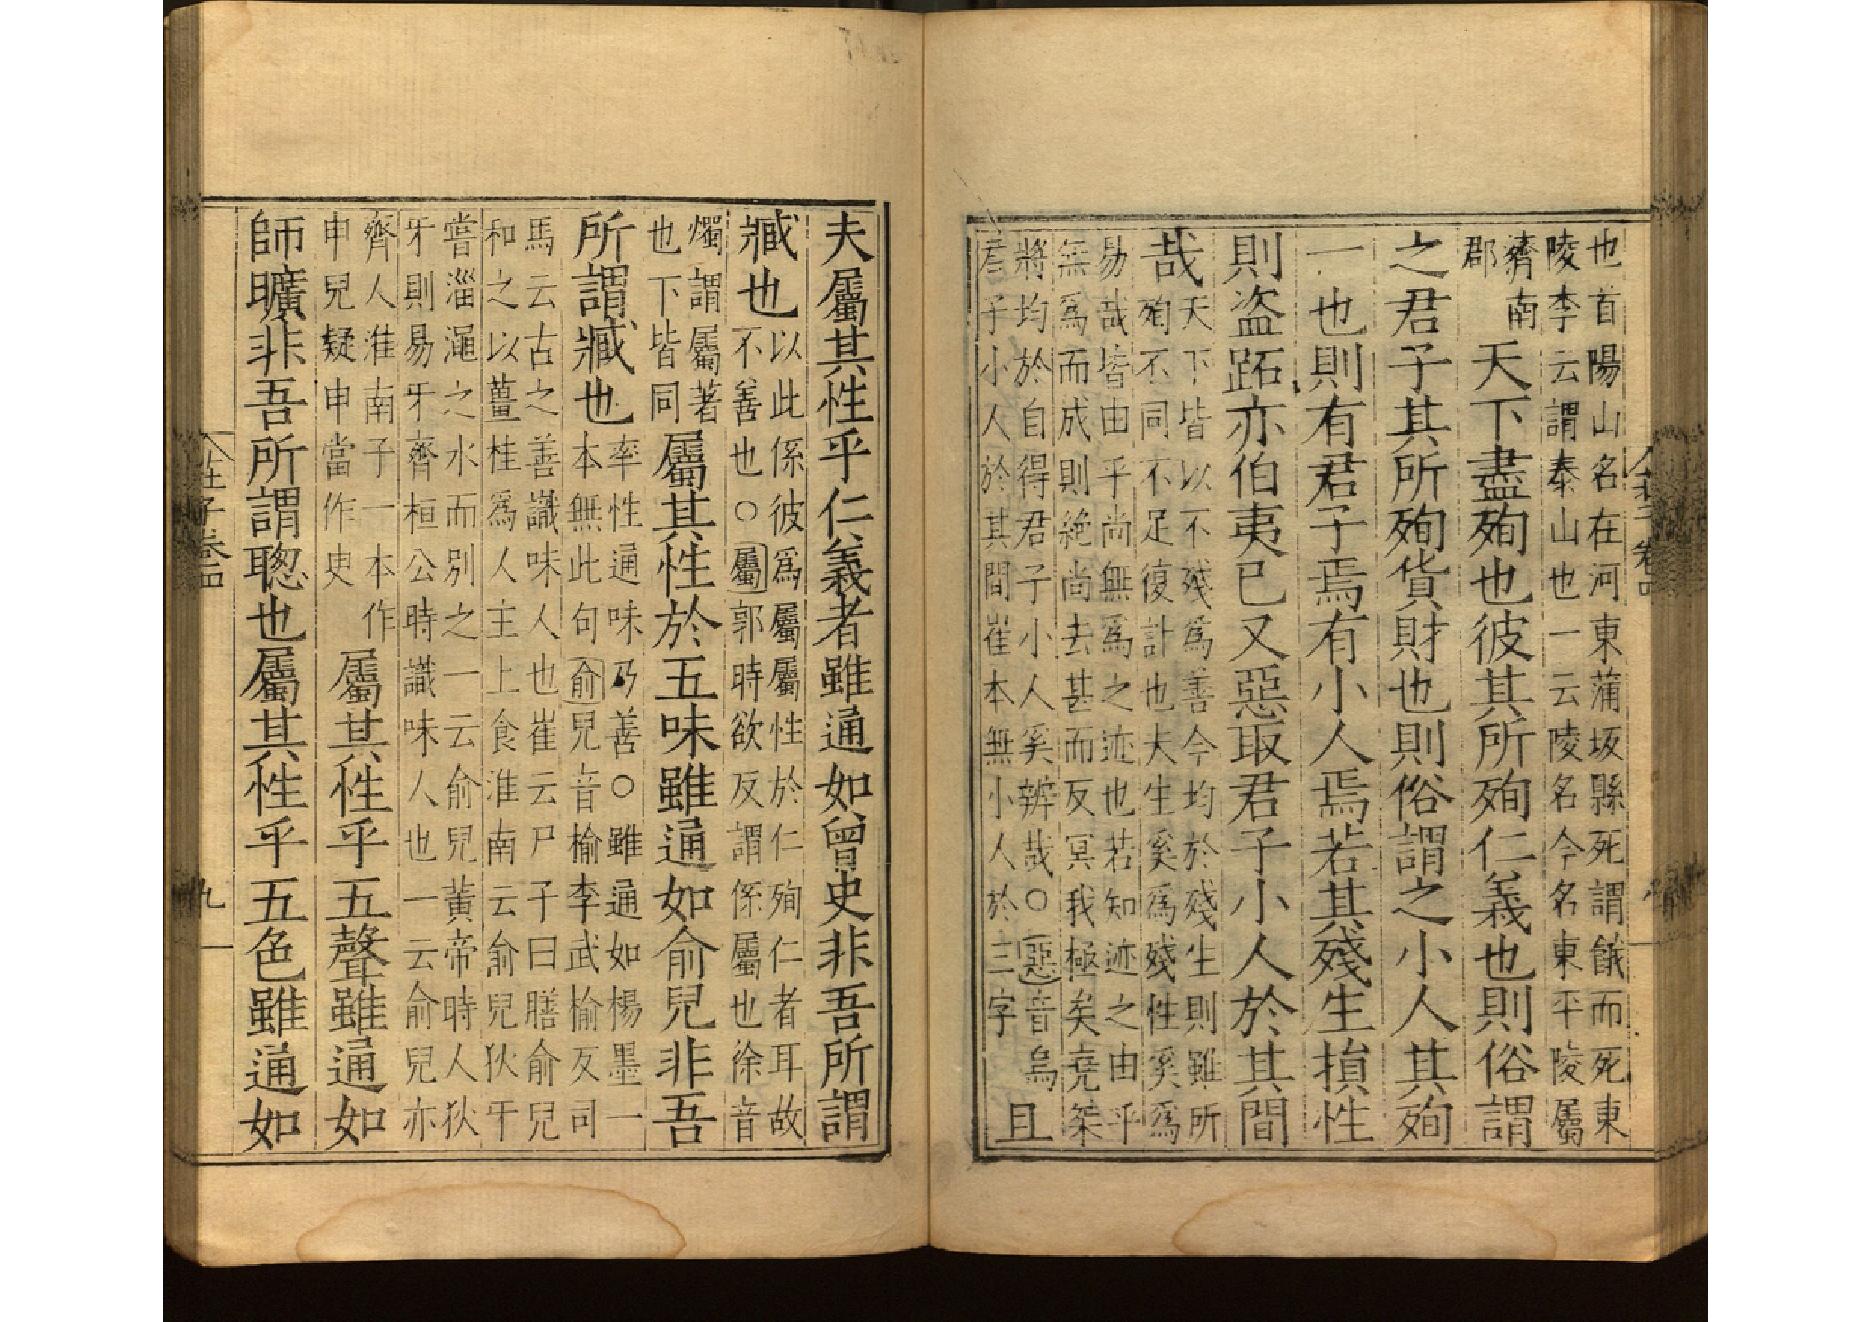 也首陽山名在河東蒲坂縣死謂餓而死東
陵李云謂泰山也一云陵名今名東平陵屬
濟南
郡
天下盡殉也彼其所殉仁義也則俗謂
之君子其所殉貨財也則俗謂之小人其殉
一也則有君子焉有小人焉若其殘生損性
則盜跖亦伯夷已又惡取君子小人於其間
哉
天下皆以不殘爲善今均於殘生則雖所
殉不同不足復計也夫生奚爲殘性奚爲
易哉皆由乎尚無爲之迹也若知迹之由乎
無爲而成則絶尚去甚而反冥我極矣堯桀
將均於自得君子小人奚辨哉○惡音烏
君子小人於其間崔本無小人於三字
且
夫屬其性乎仁義者雖通如曾史非吾所謂
臧也
以此係彼爲屬屬性於仁殉仁者耳故
不善也○屬郭時欲反謂係屬也徐音
燭謂屬著
也下皆同
屬其性於五味雖通如俞兒非吾
所謂臧也
率性通味乃善○雖通如楊墨一
本無此句俞兒音榆李武榆反司
馬云古之善識味人也崔云尸子曰膳俞兒
和之以薑桂爲人主上食淮南云俞兒狄牙
嘗淄澠之水而別之一云俞兒黃帝時人狄
牙則易牙齊桓公時識味人也一云俞兒亦
齊人淮南子一本作
申兒疑申當作史
屬其性乎五聲雖通如
師曠非吾所謂聰也屬其性乎五色雖通如
莊子卷四
九